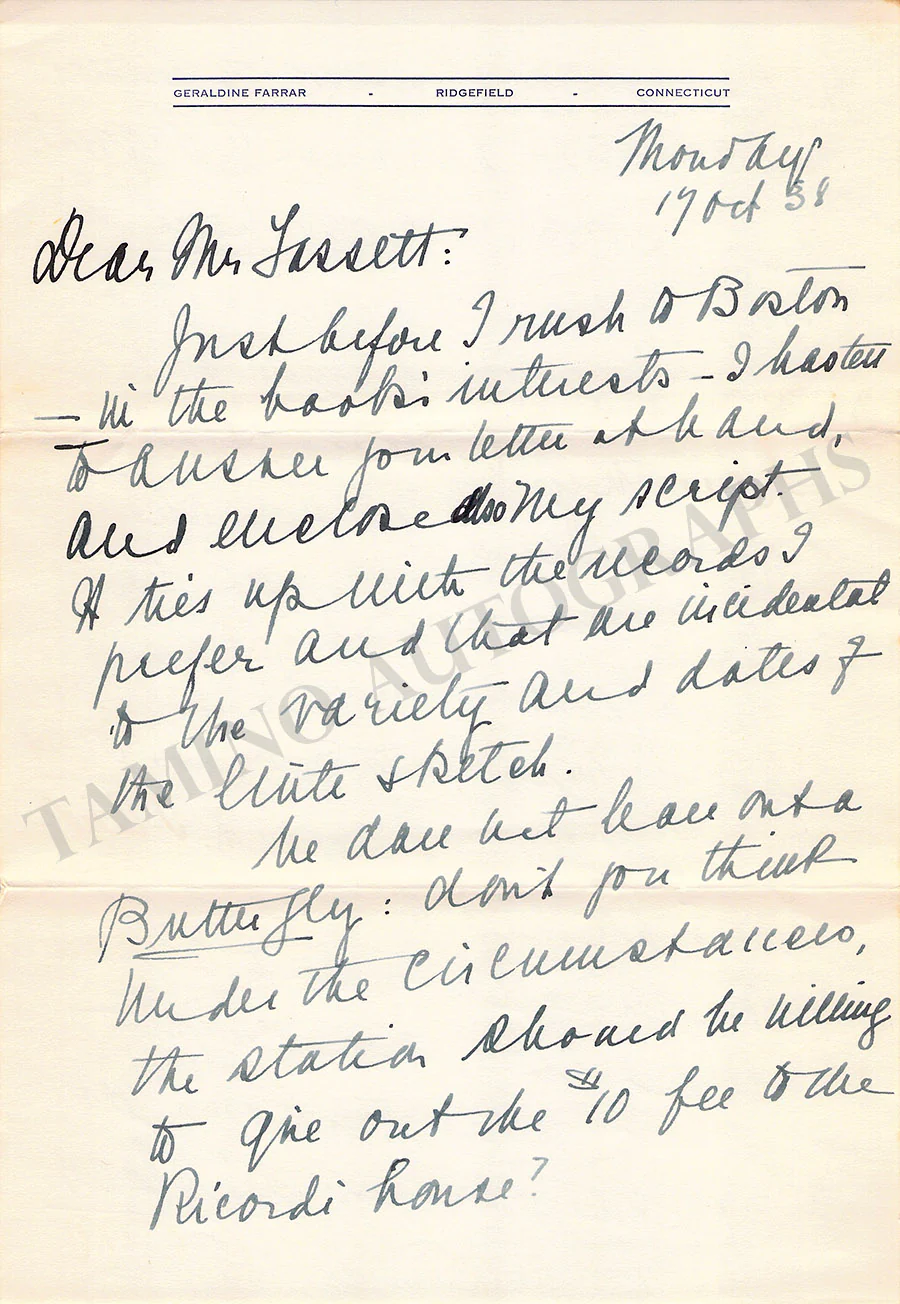 GERALDINE FARRAR - RIDGEFIELD - CONNECTICUT
Monday
17 Oct 38
Dear Mr Fassett:
Just before I rush to Boston
– in the book's interests – I hasten
to answer your letter at hand,
and enclose also my script.
It ties up with the records I
prefer and that are incidental
to the variety and dates of
the little sketch.
We dare not leave out a
Butterfly: don't you think
under the circumstances,
the station should be willing
to give out the $10 fee to the
Ricordi house?
TAMINO AUTOGRAPHS